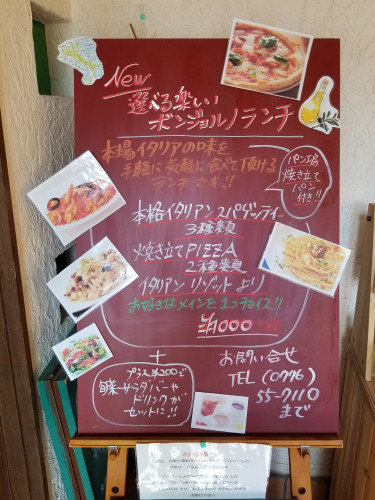 New
選べる楽しい
ボンジョルノランチ
本場イタリアの味を
手軽に気軽に食べて頂ける
ランチです!!
パン工房
焼き立て
パン
付き!!
本格イタリアンスパゲッティー
3種類
焼き立てPIZZA
2種類
イタリアンリゾットより
お好きなメインを1つチョイス!!
¥1000
+
プラス¥200で
旬菜サラダバーや
ドリンクが
セットに!!
お問い合せ
TEL (0776)
55-7110
まで